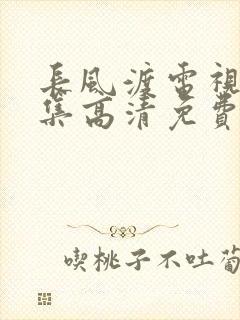 長風渡電視
集高清免費
喫桃子不吐葡